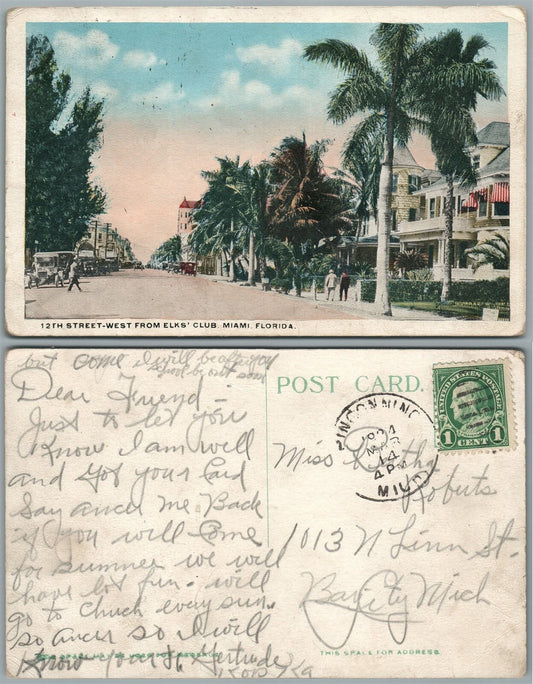 12TH STREET-WEST FROM ELKS' CLUB, MIAMI, FLORIDA.
but Come I will be after you
school be out soon
Dear Friend -
Just to let you
Know I am well
and Got your Card
Say ancer me Back
if you will Come
for summer we will
have lot fun. will
go to Chuch every sun.
so ancer so I will
Know - your Gertrude
POST CARD.
UNITED STATES POSTAGE
1 CENT 1
PINCONNING
1924
MAR
14
4 PM
MICH
Miss Bertha
Roberts
1013 N Linn St.
Bay City Mich
THIS SPACE FOR ADDRESS.